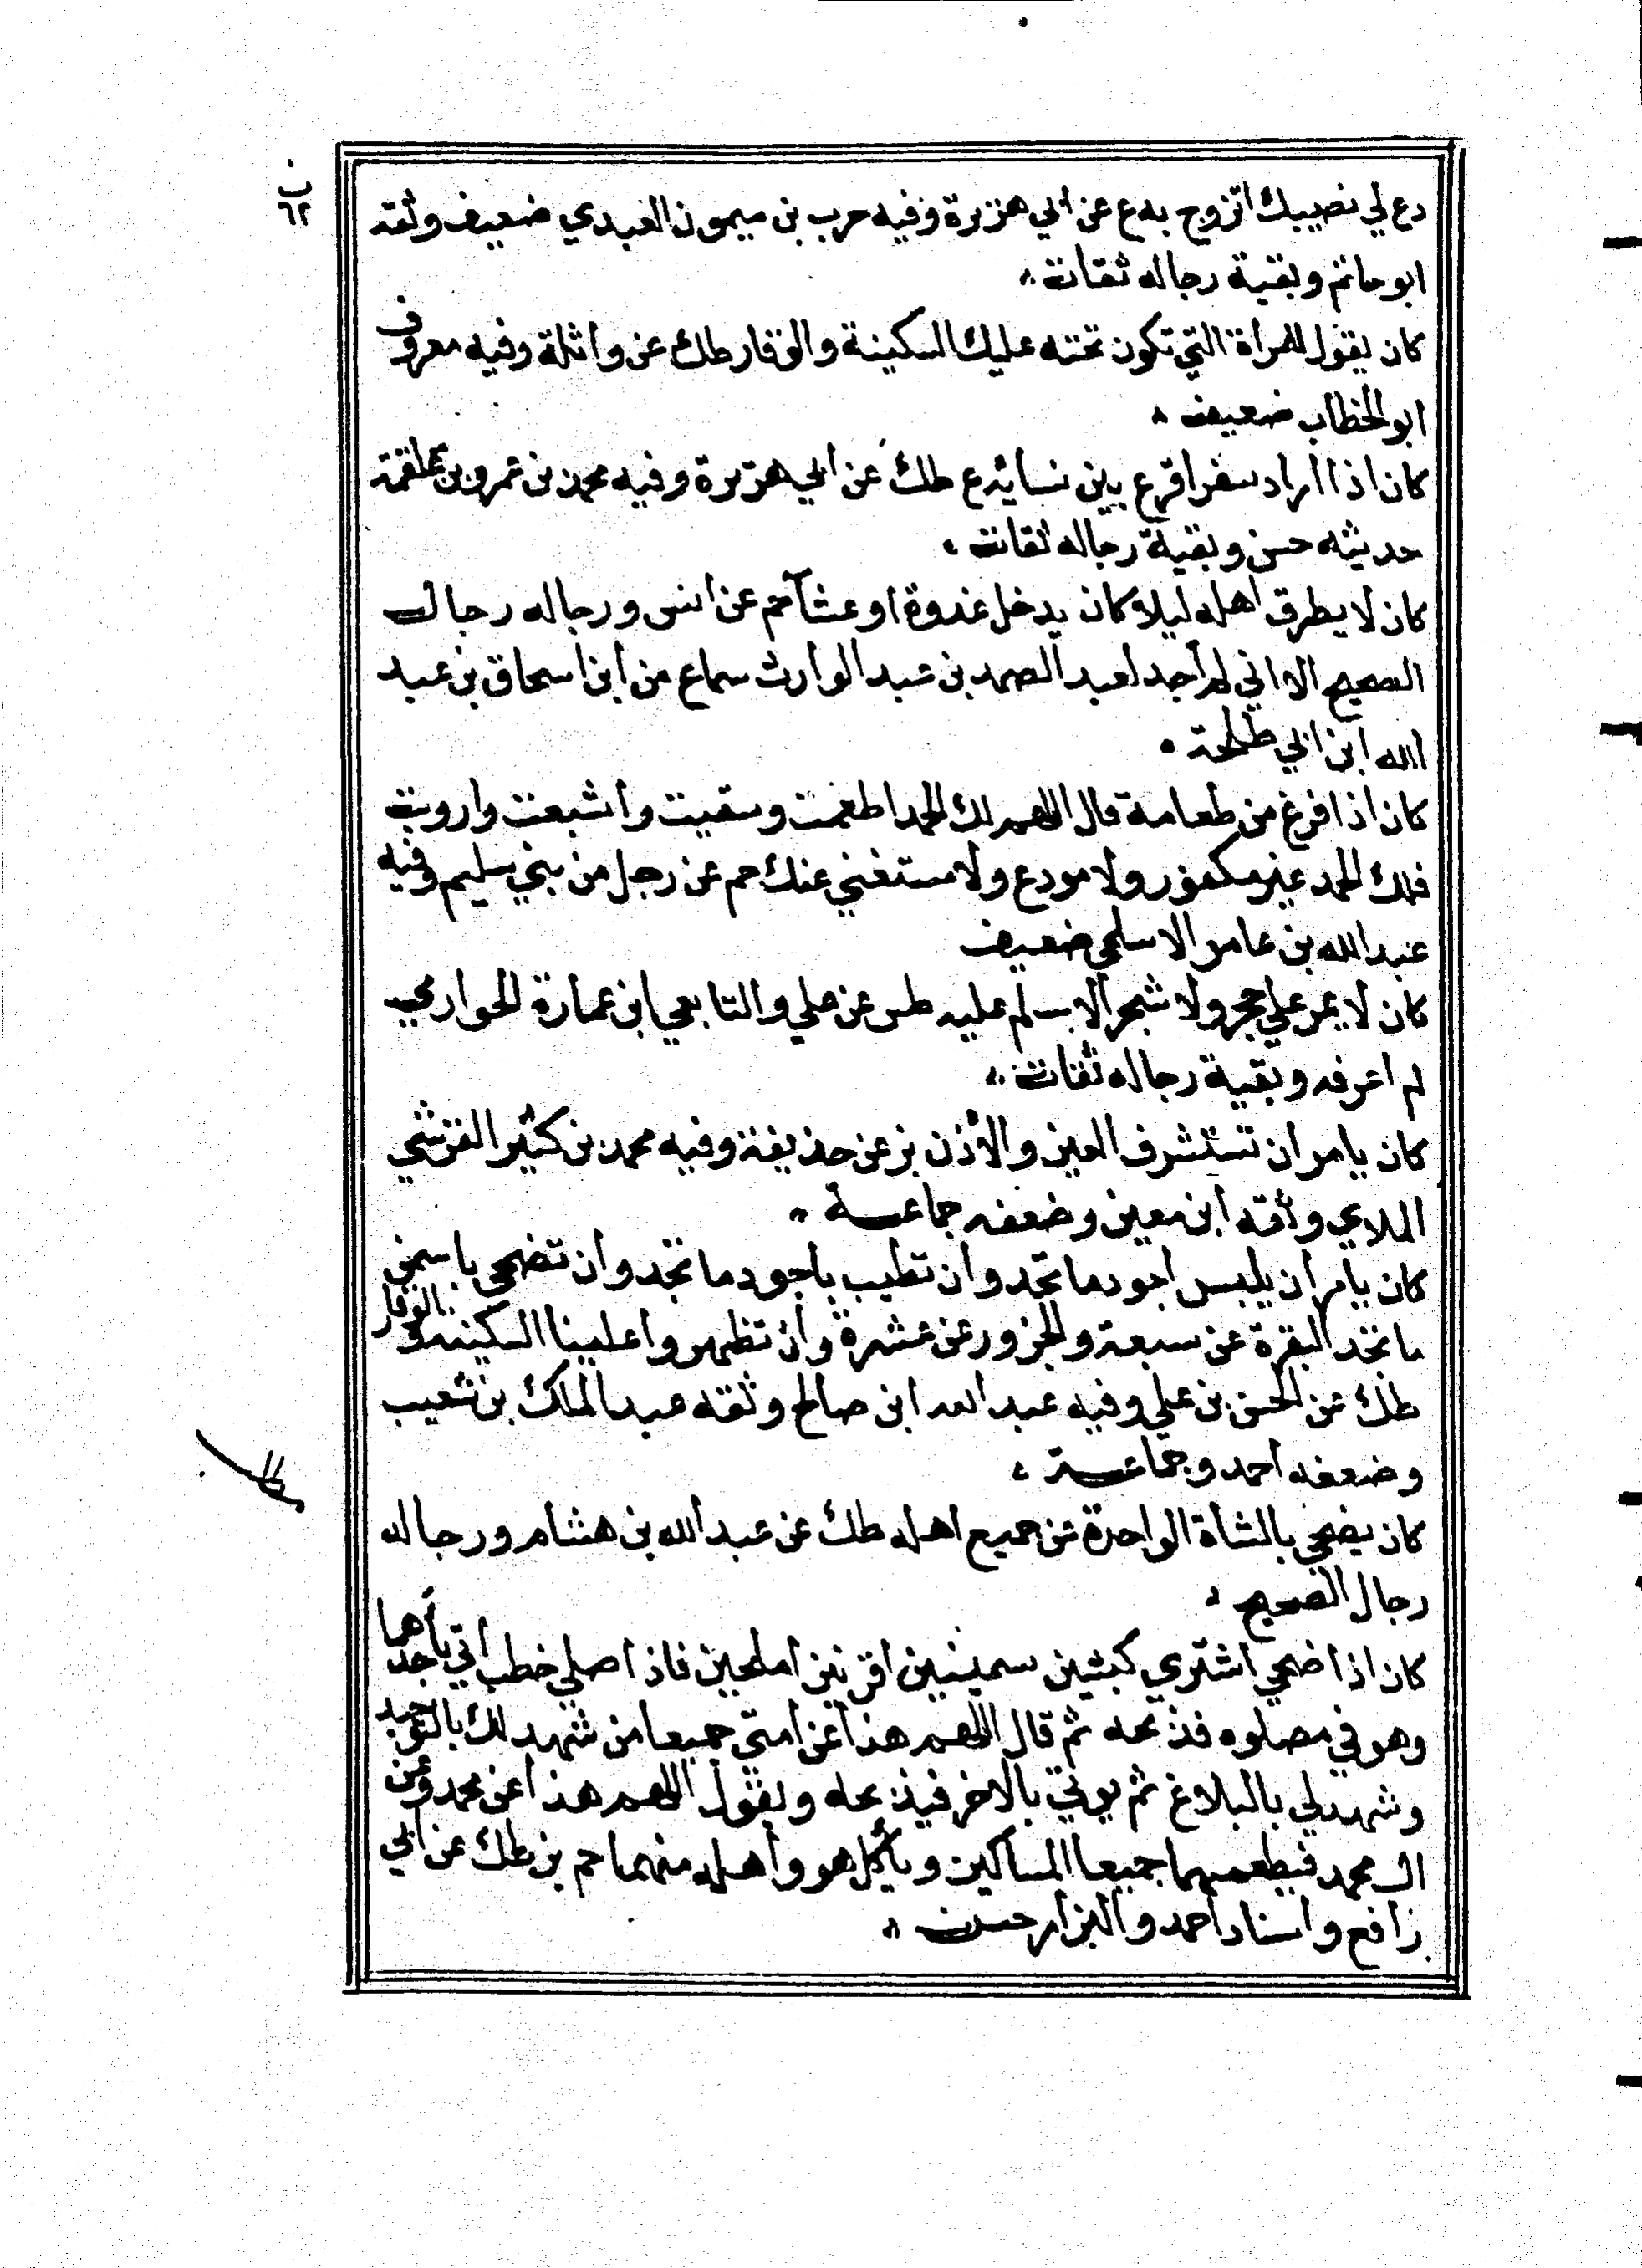 ب
٦٢
دع لي نصيبك اتزوج به ع عن ابي هريرة وفيه حرب بن ميمون العبدي ضعيف وثقه
ابو حاتم وبقية رجاله ثقات
كان يقول للمراة التي تكون تحته عليك السكينة والوقار طك عن واثلة وفيه معروف
ابو الخطاب ضعيف
كان اذا اراد سفرا قرع بين نسائه ع طك عن ابي هريرة وفيه محمد بن عمرو بن علقمة
حديثه حسن وبقية رجاله ثقات
كان لا يطرق اهله ليلا كان يدخل غدوة او عشاء حم عن انس ورجاله رجال
الصحيح الا اني لم اجد لعبد الصمد بن عبد الوارث سماع من ابن اسحاق بن عبد
الله ابن ابي طلحة
كان اذا فرغ من طعامة قال اللهم لك الحمد اطعمت وسقيت واشبعت واروبت
فلك الحمد غير مكفور ولا مودع ولا مستغني عنك حم عن رجل من بني سليم وفيه
عبد الله بن عامر الاسلمي ضعيف
كان لا يمر على حجر ولا شجر الا سلم عليه طس عن علي والتابعي ابن عمارة الحوارمي
لم اعرفه وبقية رجاله ثقات
كان يامر ان تستشرف العين والأذن بز عن حذيفة وفيه محمد بن كثير القرشي
الملاي وثقه ابن معين وضعفه جماعة
كان يامر ان يلبس اجود ما تجد وان تطيب باجود ما تجد وان تضحي باسمن
ما تجد البقرة عن سبعة والجزور عن عشرة وان تظهروا علينا السكينه والوقار
طك عن الحسن بن علي وفيه عبد الله ابن صالح وثقه عبد الملك بن شعيب
وضعفه احمد وجماعة
كان يضحي بالشاة الواحدة عن جميع اهله طك عن عبد الله بن هشام ورجاله
رجال الصحيح
كان اذا ضحي اشتري كبشين سمينين اقرنين املحين فاذا صلي خطب اتي باحدهما
وهو في مصلوه فذبحه ثم قال اللهم هذا عن امتي جميعا من شهد لك بالتوحيد
وشهد لي بالبلاغ ثم يوتي بالاخر فيذبحه ويقول اللهم هذا عن محمد وعن
ال محمد فيطعمهما جميعا المساكين وياكل هو واهله منهما حم بز طك عن ابي
رافع واسناد احمد والبزار حسن